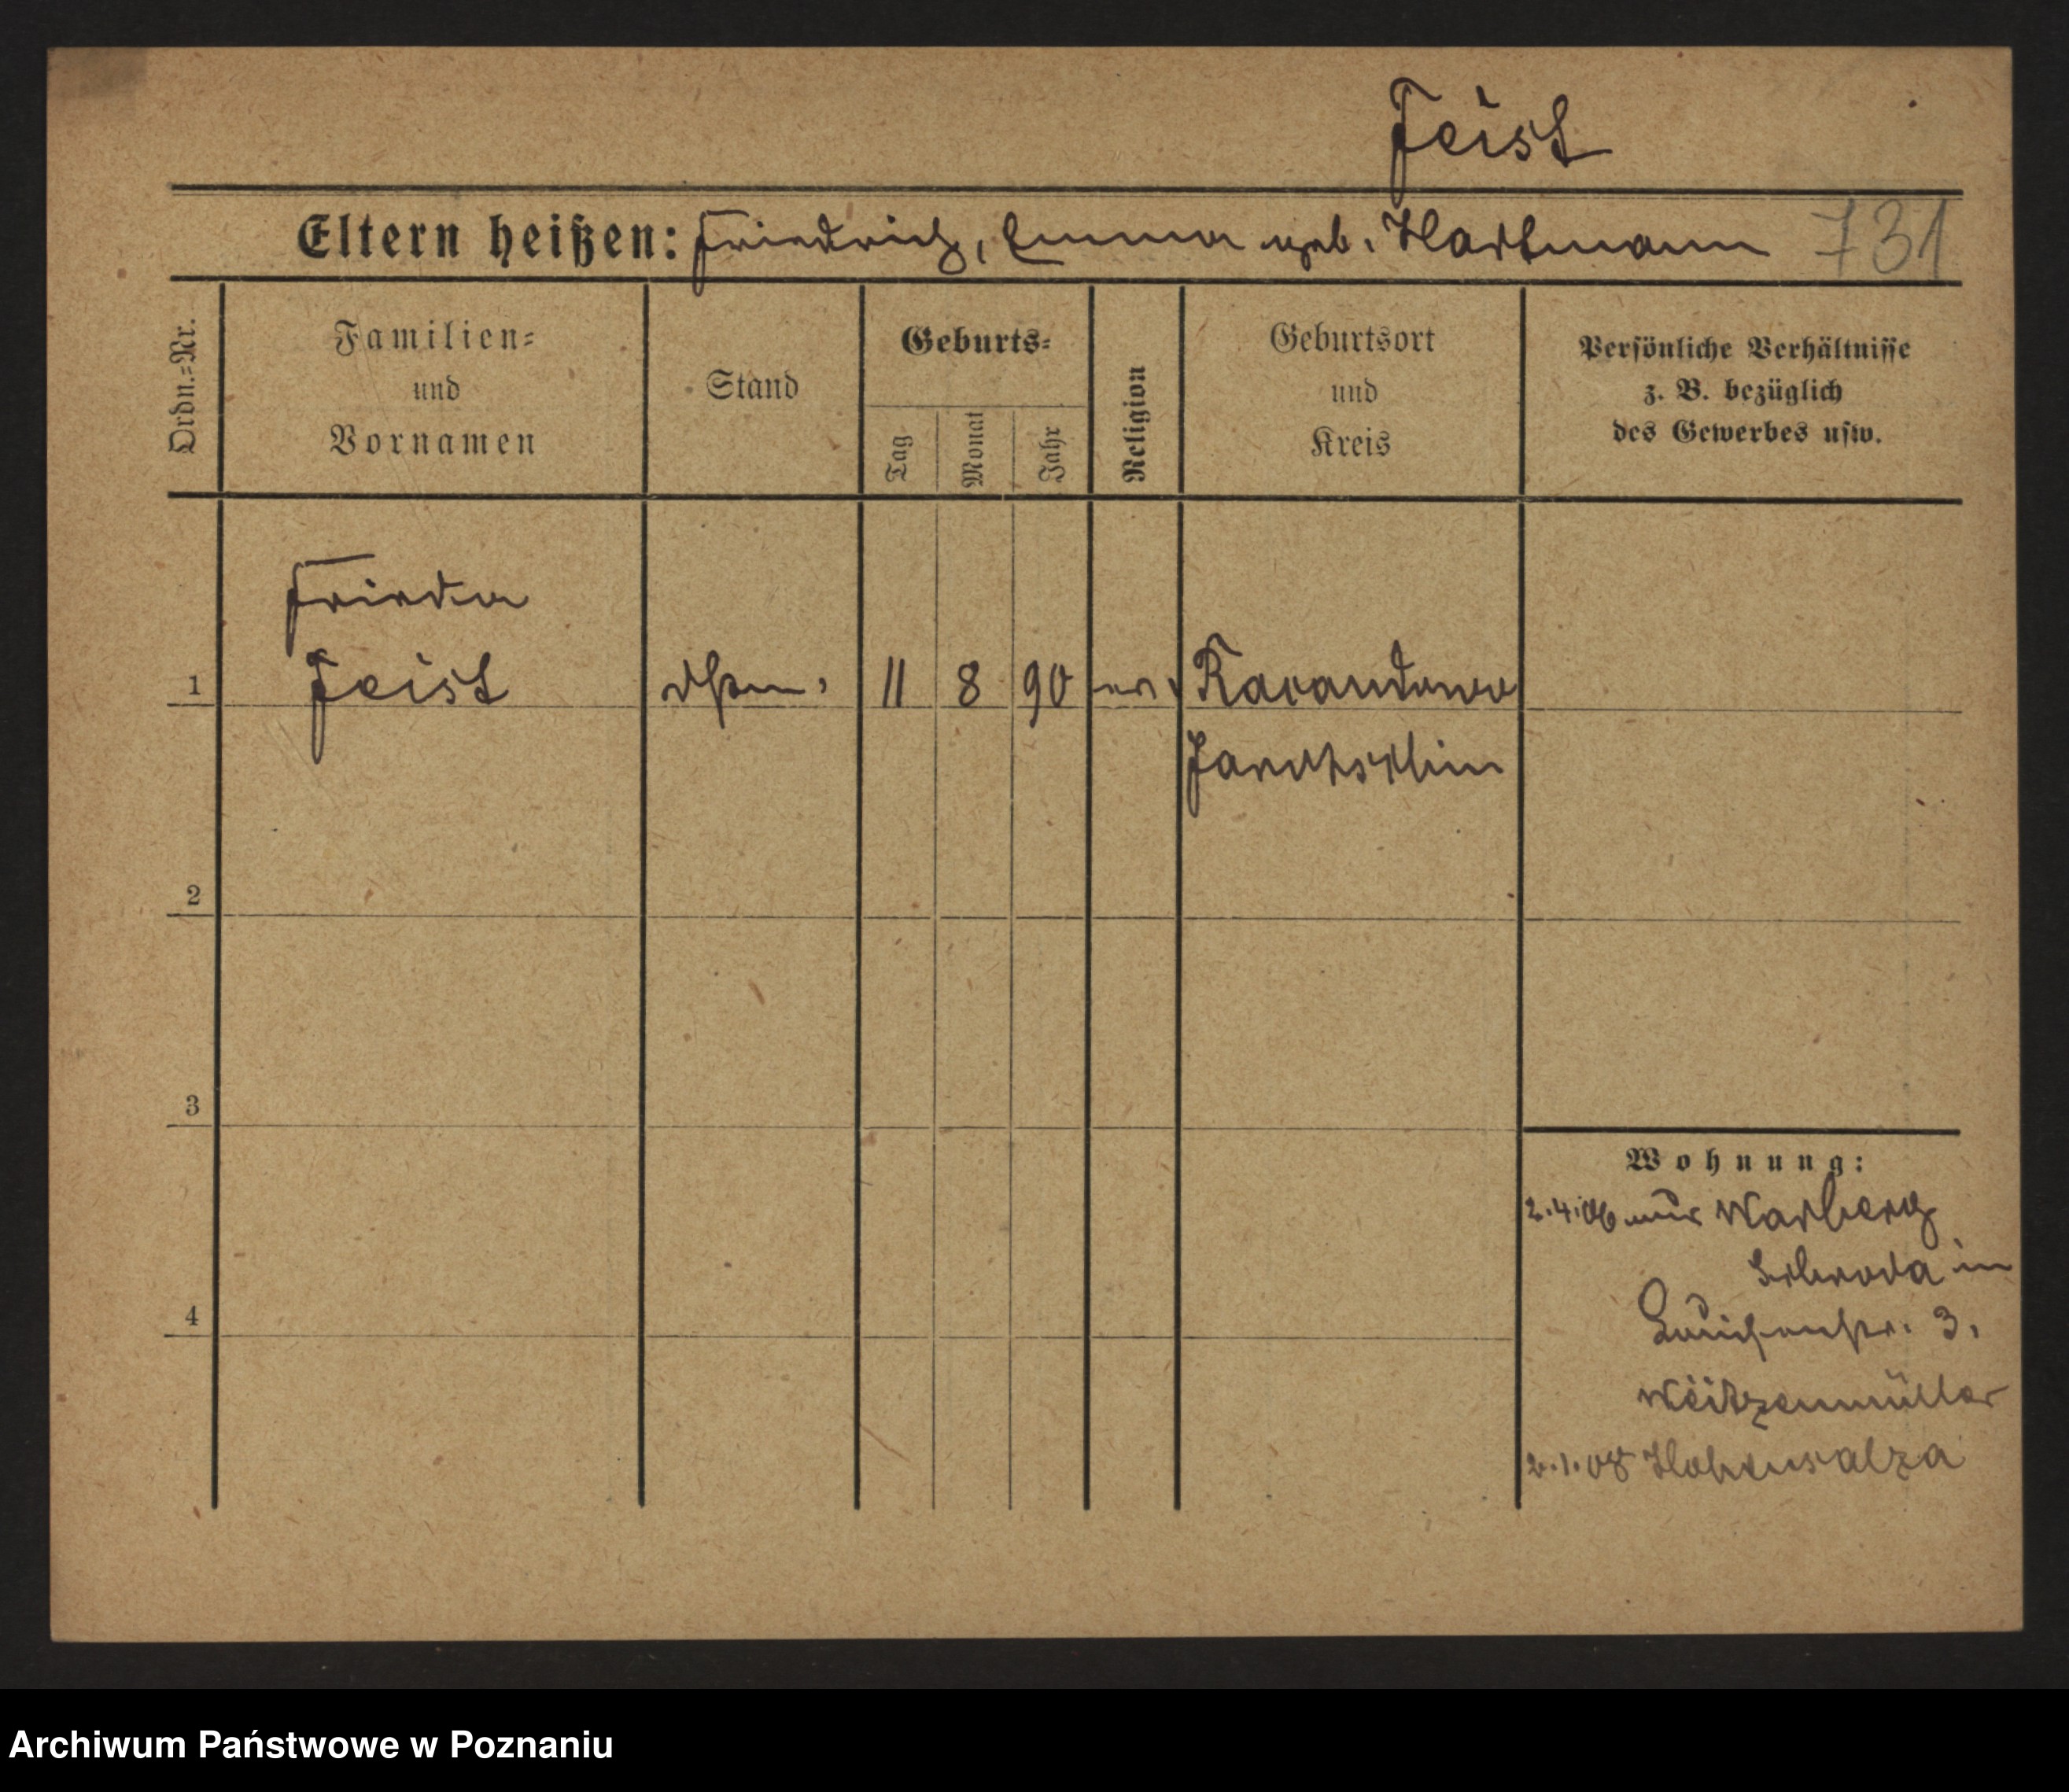 Feist
Eltern heißen: Friedrich, Emma geb. Hartmann 731
Ordn.=Nr.
Familien=
und
Vornamen
Stand
Geburts=
Tag
Monat
Jahr
Religion
Geburtsort
und
Kreis
Persönliche Verhältnisse
z. B. bezüglich
des Gewerbes usw.
Frieda
1 Feist 11 8 90 ev.
2
3
4
Wohnung:
2.4.06 aus
in
Louisenstr. 3,
Weitzenmüller
2.1.08 Hohensalza
Archiwum Państwowe w Poznaniu